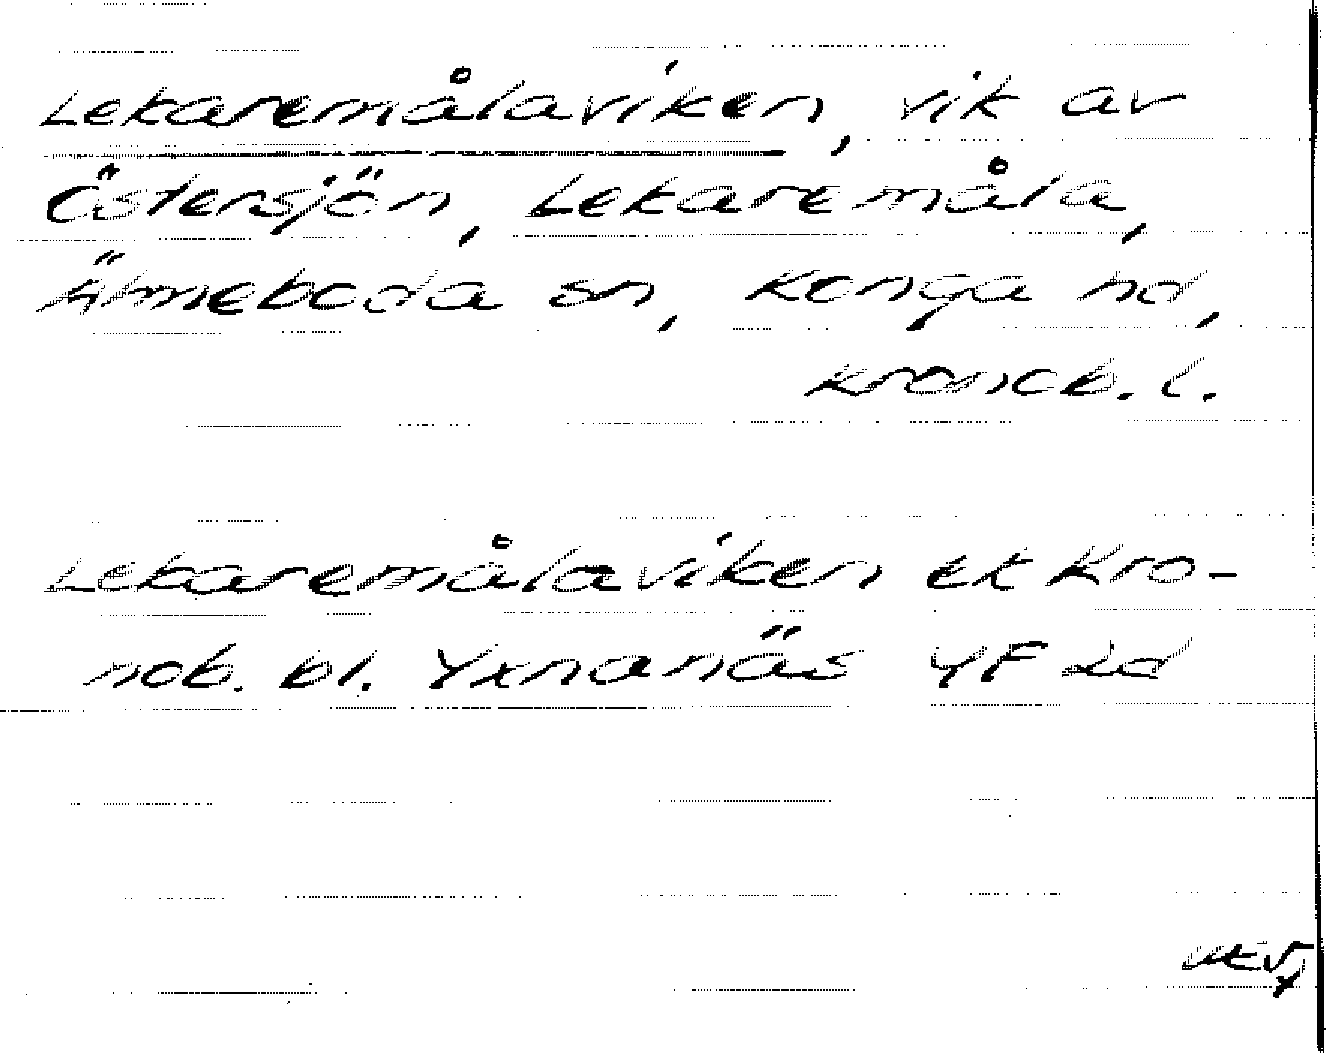 Lekaremålaviken, vik av
Östersjön, Lekaremåla,
Älmeboda sn, Konga hd,
Kronob. l.
Lekaremålaviken ek Kro-
nob. bl. Yxnanäs YF 2d